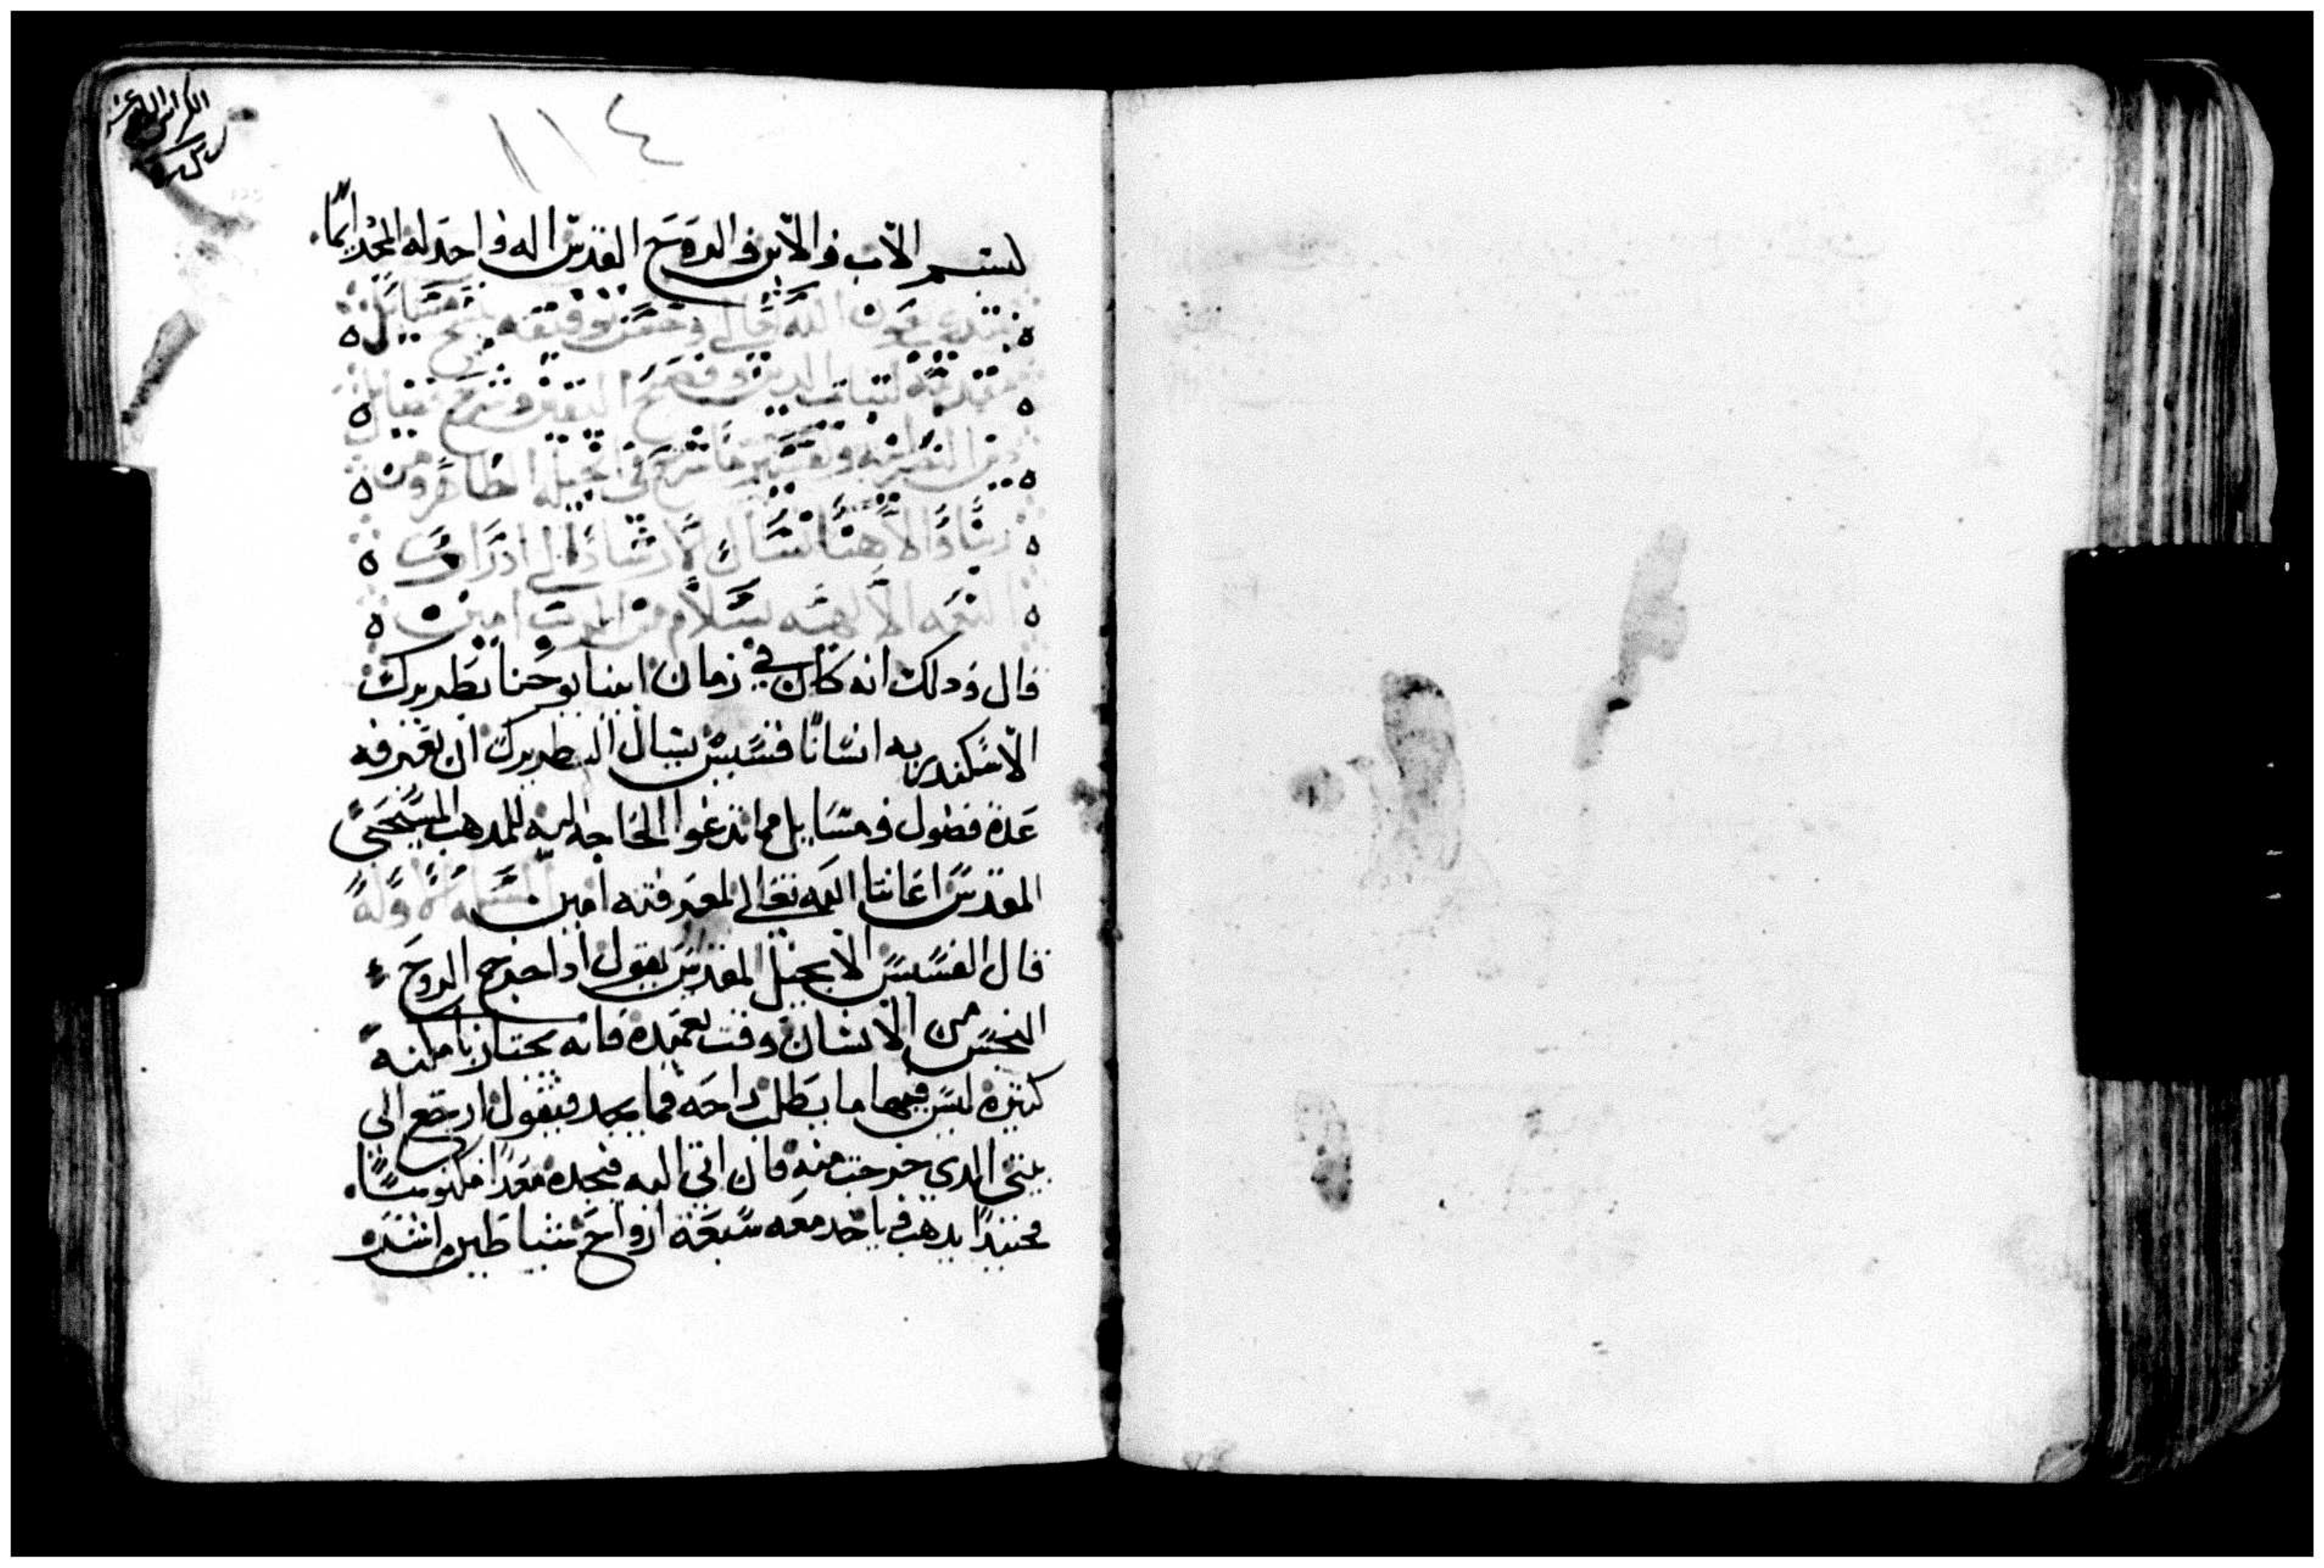 ١١٤
بسم الاب والابن والروح القدس اله واحد له المجد دايما
نبتدي بعون الله تعالي وحسن توفيقه بنسخ مسايل
دين النصرانيه وتفسير ما شرح في انجيله الطاهر من
ربنا والاهنا نسال الارشاد الي ادراك
النعمه الالهيه بسلام من الرب امين
قال وذلك انه كان في زمان ابينا يوحنا بطريرك
الاسكندريه انسانا قسيس يسال البطريرك ان يعرفه
عدة فصول ومسايل مما تدعوا الحاجه اليه للمدهب المسيحي
المقدس اعاننا الله تعالي لمعرفته امين المسله الاوله
قال القسيس الانجيل المقدس يقول ادا خرج الروح
النجس من الانسان وقت تعميده فانه يجتاز باماكنه
كثيره ليس فيها ما يطلب راحه فما يجد فيقول ارجع الي
بيتي الدي خرجت منه فان اتي اليه فيجده معدا مكنوسا
فحينيدا يدهب وياخد معه سبعة ارواح شياطين اشر